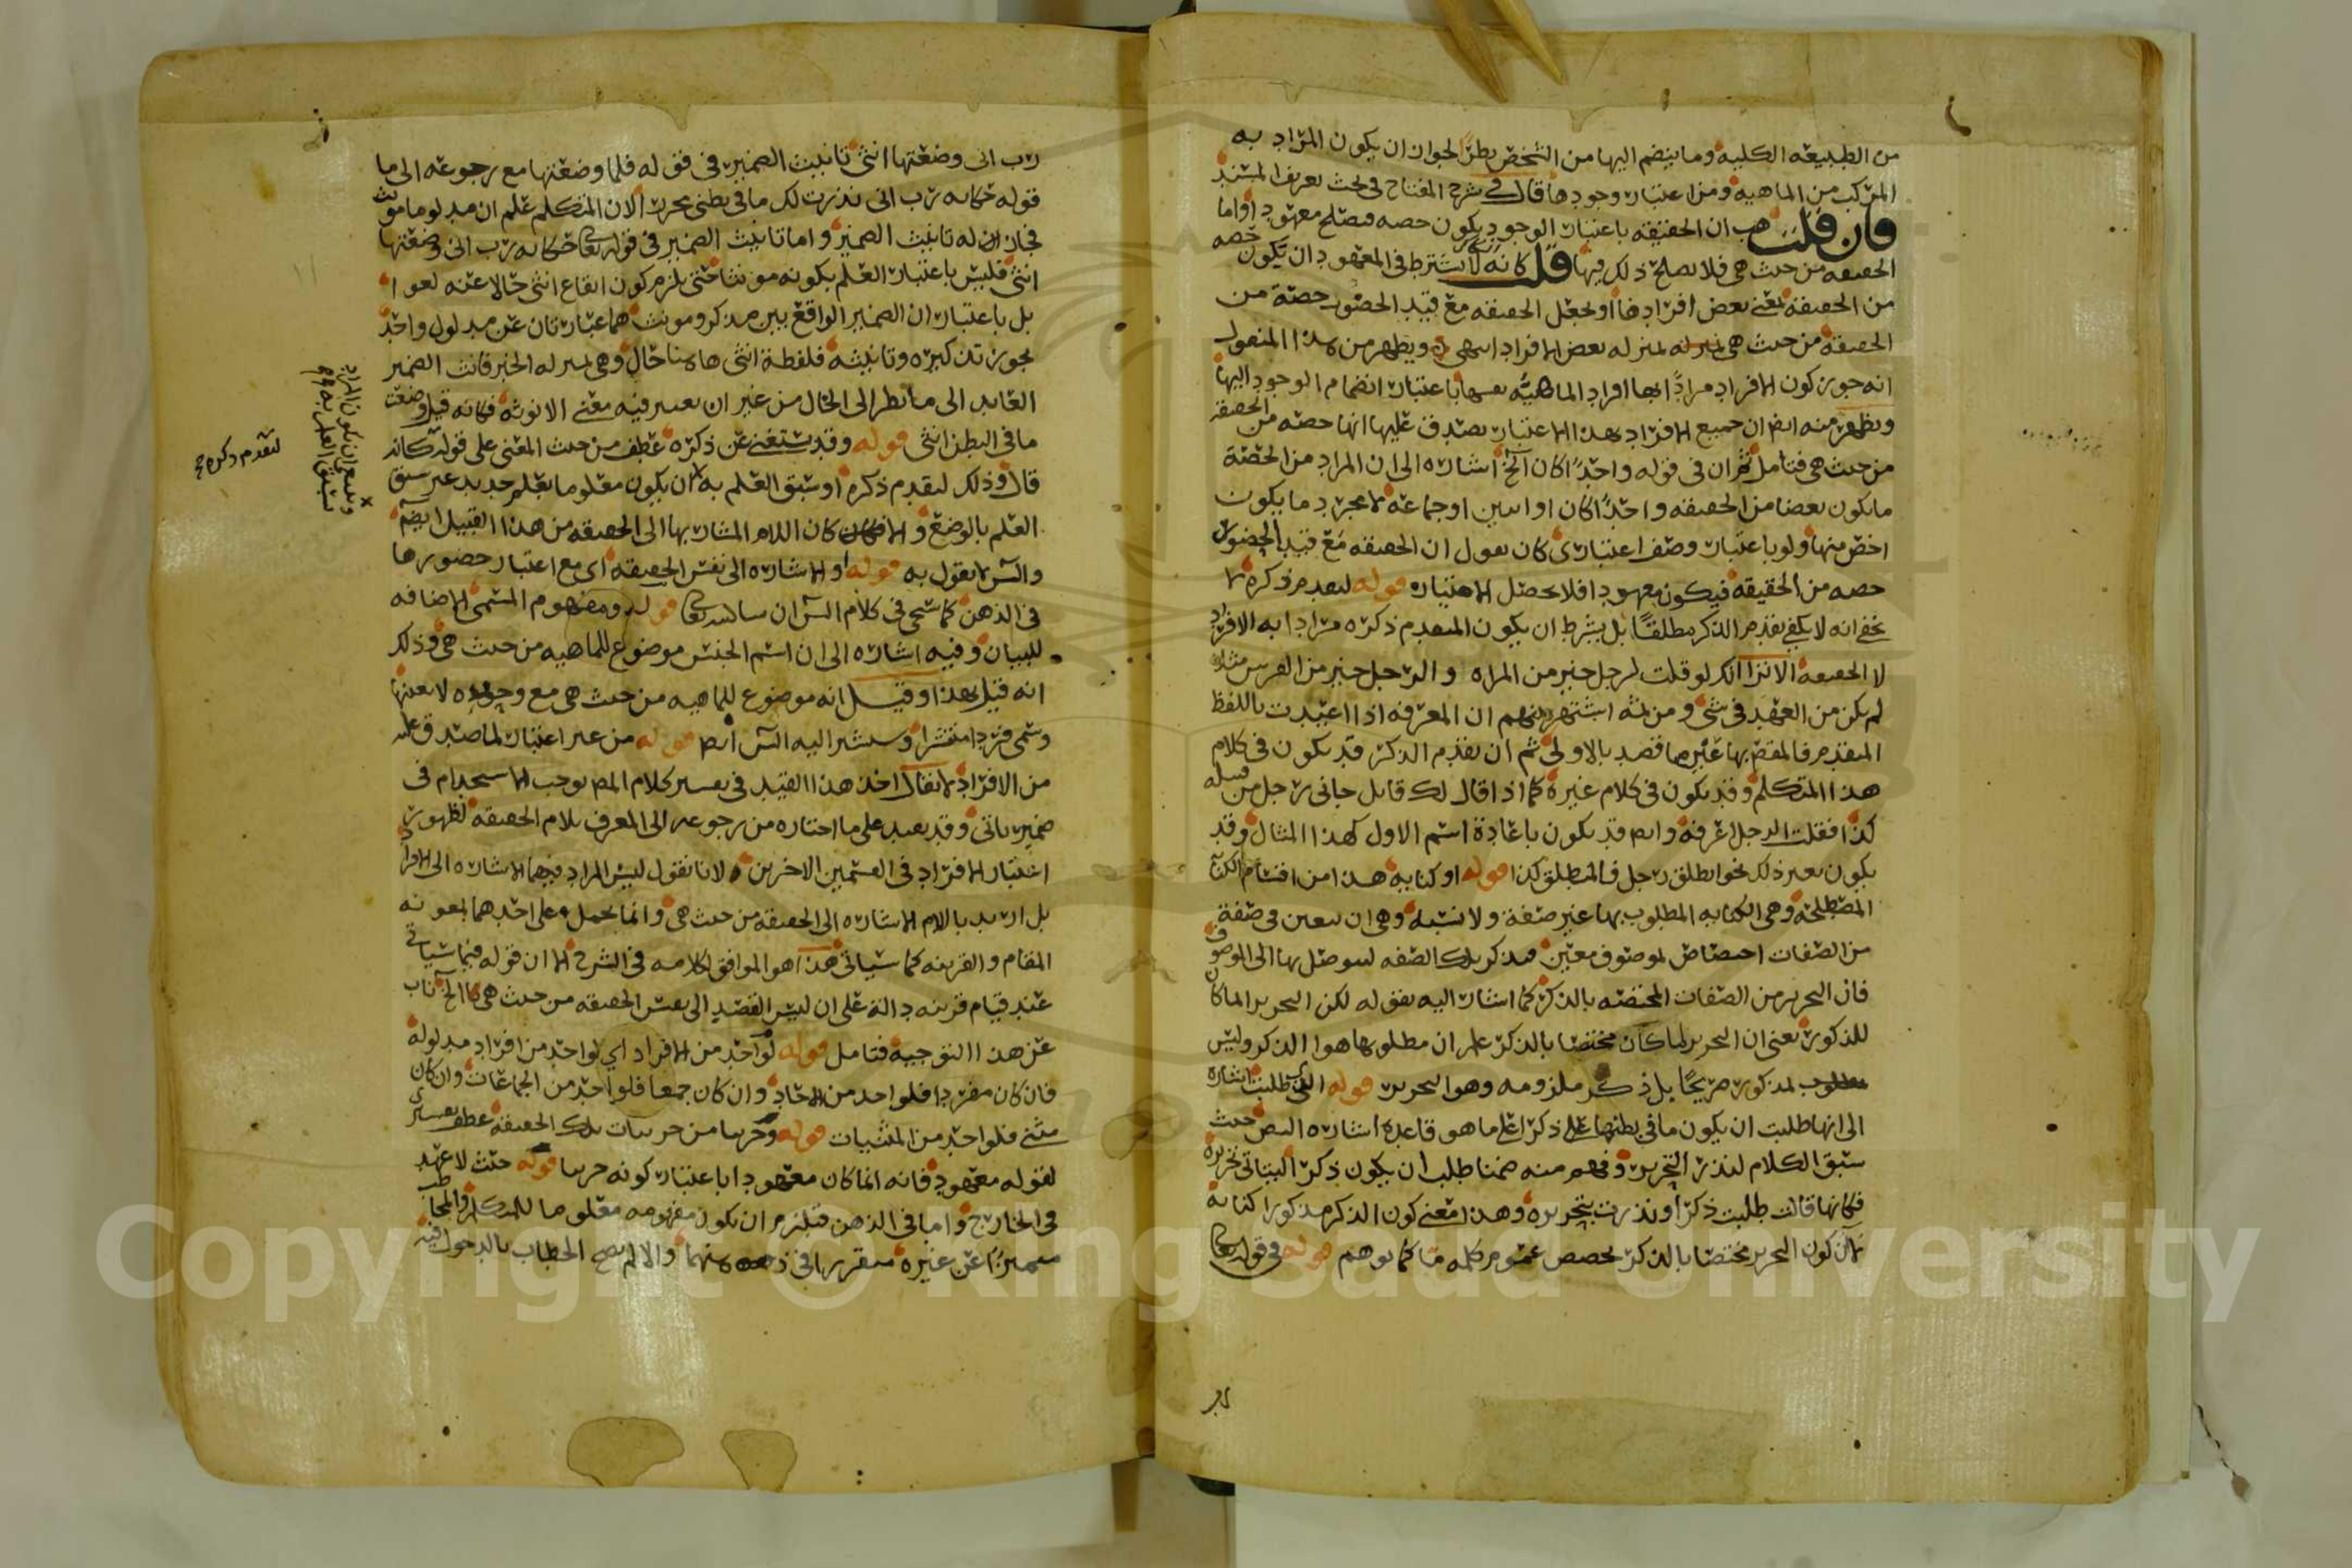 من الطبيعه الكليه وما ينضم اليها من التشخص نظرًا لجواز ان يكون المراد به
المركب من الماهيه ومن اعتبار وجودها قال في شرح المفتاح في بحث تعريف المسند
فان قلت هب ان الحقيقه باعتبار الوجود يكون حصه فيصلح معهودا واما
الحقيقه من حيث هي فلا يصلح ذلك فيها قلت كانه لا يشترط في المعهود ان يكون حصه
من الحقيقه بمعنى بعض افرادها او يجعل الحقيقه مع قيد الحضور حصة من
الحقيقة من حيث هي بمنزله بعض الافراد انتهى ويظهر من هذا المنقول
انه جوز كون الافراد مرادًا بها افراد الماهية نفسها باعتبار انضمام الوجود اليها
ويظهر منه ايضا ان جميع الافراد بهذا الاعتبار يصدق عليها انها حصه من الحقيقه
من حيث هي فتامل ثم ان في قوله واحدًا كان الخ اشاره الى ان المراد من الحصة
ما يكون بعضا من الحقيقه واحدًا كان او اثنين او جماعه لا مجرد ما يكون
اخص منها ولو باعتبار وصف اعتباري كان نقول ان الحقيقه مع قيد الحضور
حصه من الحقيقه فيكون معهودا فلا يحصل الامتياز قوله لتقدم ذكره لا
يخفى انه لا يكفي تقدم الذكر مطلقًا بل يشترط ان يكون المتقدم ذكره مرادا به الافراد
لا الحقيقه الا ترى انك لو قلت لرجل خير من المراه والرجل خير من الفرس مثلا
لم يكن من العهد في شئ ومن ثمه اشتهر بينهم ان المعرفه اذا اعيدت باللفظ
المتقدم فالمقصود بها غير ما قصد بالاولى ثم ان تقدم الذكر قد يكون في كلام
هذا المتكلم وقد يكون في كلام غيره كما اذا قال لك قايل جاني رجل من قبيله
كذا فقلت الرجل اعرفه وايضا قد يكون باعادة اسم الاول كهذا المثال وقد
يكون بغير ذلك نحو انطلق رجل فالمنطلق كذا قوله او كنايه هذا من اقسام الكناية
المصطلحة وهي الكنايه المطلوب بها غير صفة ولا نسبه وهي ان يتعين في صفة
من الصفات اختصاص لموصوف معين فيذكر تلك الصفه ليتوصل بها الى الموصوف
فان التحرير من الصفات المختصه بالذكر كما اشار اليه بقوله لكن التحرير انما كان
للذكور يعني ان التحرير لما كان مختصا بالذكر علم ان مطلوبها هو الذكر وليس
بمذكور صريحًا بل ذكر ملزومه وهو التحرير قوله التي طلبت اشاره
الى انها طلبت ان يكون ما في بطنها ذكرا على ما هو قاعدة اشاره النص حيث
سبق الكلام لنذر التحرير وفهم منه ضمنا طلب ان يكون ذكرًا
فكانها قالت طلبت ذكرًا ونذرت بتحريره وهذا معنى كون الذكر مذكورا كناية
لا ان كون التحرير مختصا بالذكر يخصص عموم كلمه ما كما توهم قوله في قوله تعالى
رب اني وضعتها انثى تانيث الضمير في قوله فلما وضعتها مع رجوعه الى ما
قوله حكايه رب اني نذرت لك ما في بطني محررا لان المتكلم علم ان مدلول ما مونث
فجاز له تانيث الضمير واما تانيث الضمير في قوله تعالى حكايه رب اني وضعتها
انثى فليس باعتبار العلم بكونه مونثا حتى يلزم كون ايقاع انثى حالا عنه لغوا
بل باعتبار ان الضمير الواقع بين مذكر ومونث هما عبارتان عن مدلول واحد
يجوز تذكيره وتانيثه فلفظة انثى هاهنا حال وهي بمنزله الخبر فانث الضمير
العايد الى ما نظرا الى الحال من غير ان يعتبر فيه معنى الانوثه فكانه قيل وضعت
ما في البطن انثى قوله وقد يستغنى عن ذكره عطف من حيث المعنى على قوله كانه
قال وذلك لتقدم ذكره او سبق العلم به لا ان يكون معلوما بعلم جديد غير سبق
العلم بالوضع والا كان اللام المشار بها الى الحقيقه من هذا القبيل ايضا
والش لا يقول به قوله او الاشاره الى نفس الحقيقه اي مع اعتبار حضورها
في الذهن كما سيجى في كلام الش ان شا الله تعالى قوله ومفهوم المسمى الاضافه
للبيان وفيه اشاره الى ان اسم الجنس موضوع للماهيه من حيث هي وذلك
انه قيل بهذا وقيل انه موضوع للماهيه من حيث هي مع وحده لا بعينها
وتسمى فردا منتشرا وسيشير اليه الش ايضا قوله من غير اعتبار لما صدق عليه
من الافراد لا يقال اخذ هذا القيد في تفسير كلام المص يوجب الاستخدام في
ضمير ياتي وقد يفيد على ما اختاره من رجوعه الى المعرف بلام الحقيقه لظهور
اعتبار الافراد في القسمين الاخرين لانا نقول ليس المراد فيهما الاشاره الى الافراد
بل اريد باللام الاشاره الى الحقيقه من حيث هي وانما يحمل على احدهما بمعونه
المقام والقرينه كما سياتي هذا هو الموافق لكلامه في الشرح الا ان قوله فيما سياتي
عند قيام قرينه دالة على ان ليس القصد الى نفس الحقيقه من حيث هي الخ ناب
عن هذا التوجيه فتامل قوله لواحد من الافراد اي لواحد من افراد مدلوله
فان كان مفردا فلواحد من الاحاد وان كان جمعا فلواحد من الجماعات وان كان
مثنى فلواحد من المثنيات قوله وجزيا من جزييات تلك الحقيقه عطف تفسيري
لقوله معهود فانه انما كان معهودا باعتبار كونه جزيا قوله حيث لا عهد
في الخارج واما في الذهن فيلزم ان يكون مفهومه معلوما للمتكلم والمخاطب
متميزًا عن غيره متقررا في ذهنهما والا لم يصح الخطاب بالدخول فيه
وينبغي ان يكون المراد
بسبق العلم به
لتقدم ذكره صح
Copyright © King Saud University